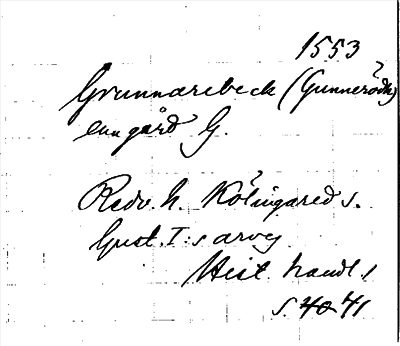 1553
Grunnarebeck (Gunneröd?)
een gård G.
Redv. h. Kölingared s.
Gust. I:s arveg.
Hist. handl. 1
s. 40 41